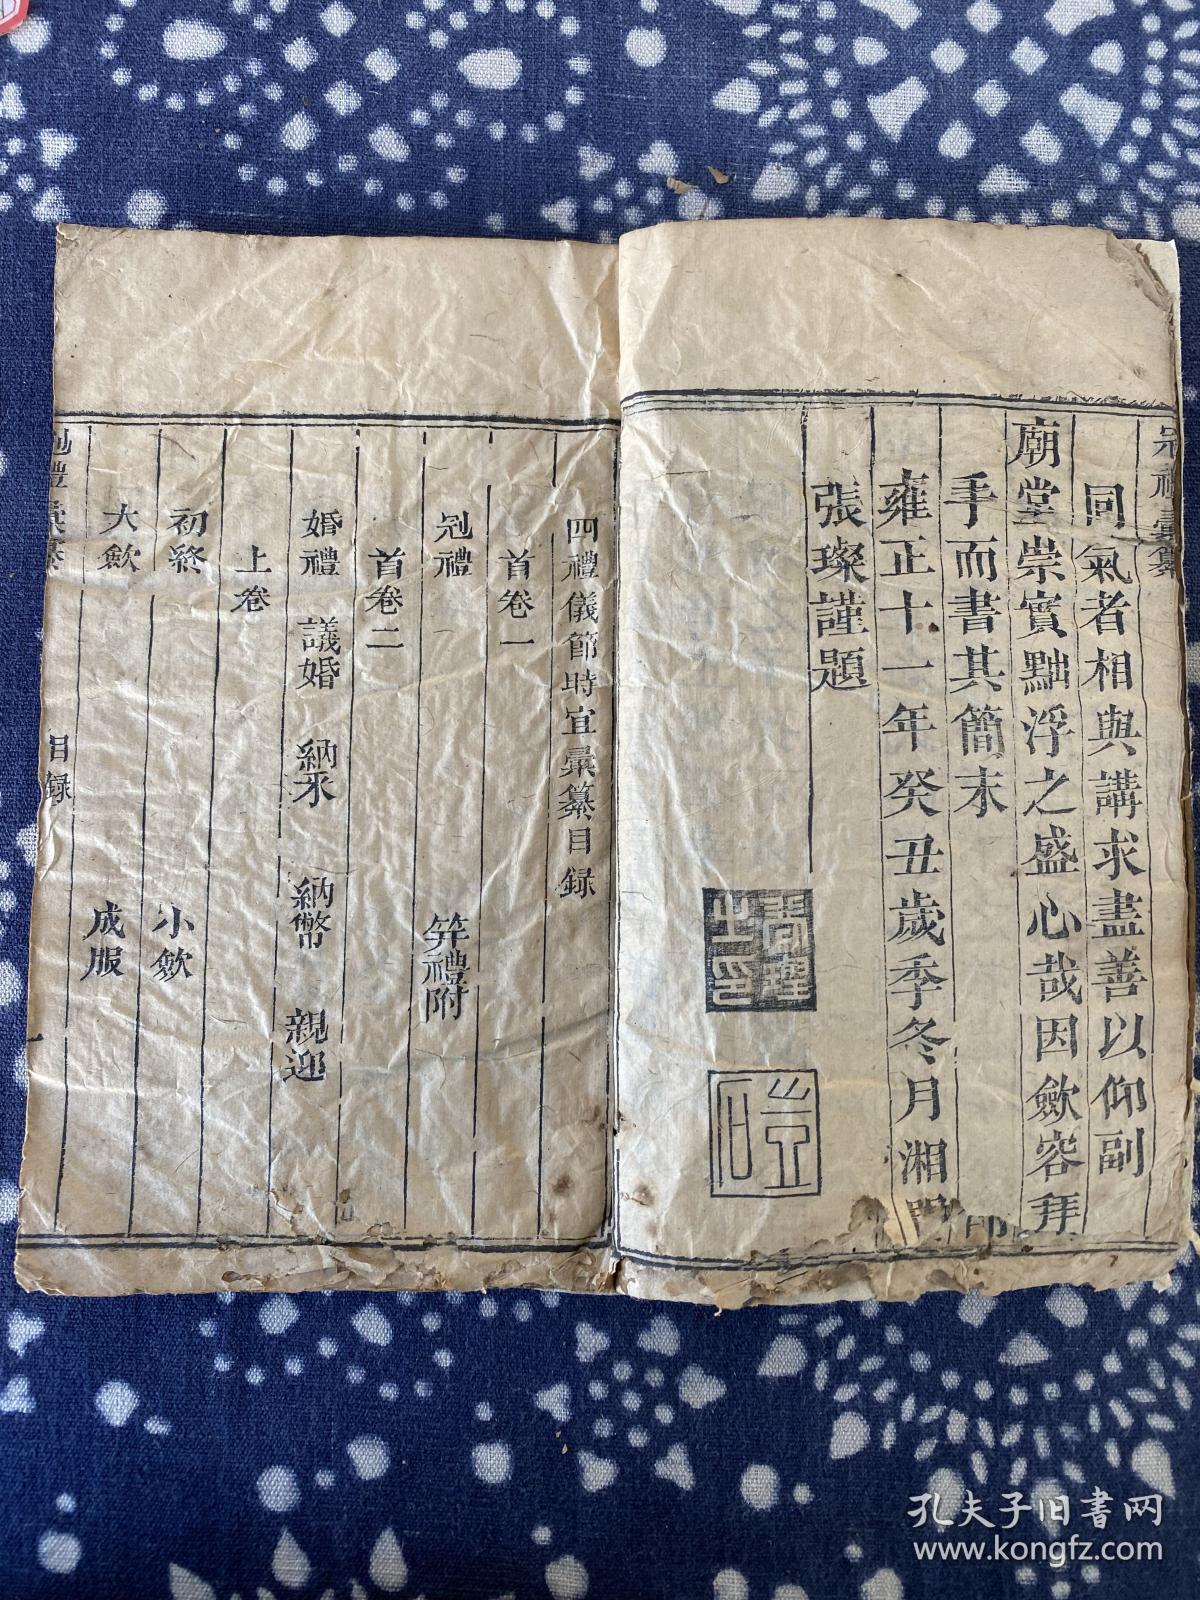 同氣者相與講求盡善以仰副
廟堂崇實黜浮之盛心哉因歛容拜
手而書其簡末
雍正十一年癸丑歲季冬月湘
張璨謹題
四禮儀節時宜彙纂目録
首卷一
冠禮 笄礼附
首卷二
婚禮 議婚 納采 納幣 親迎
上卷
初終 小歛
大歛 成服
目録
一
孔夫子旧书网
www.kongfz.com